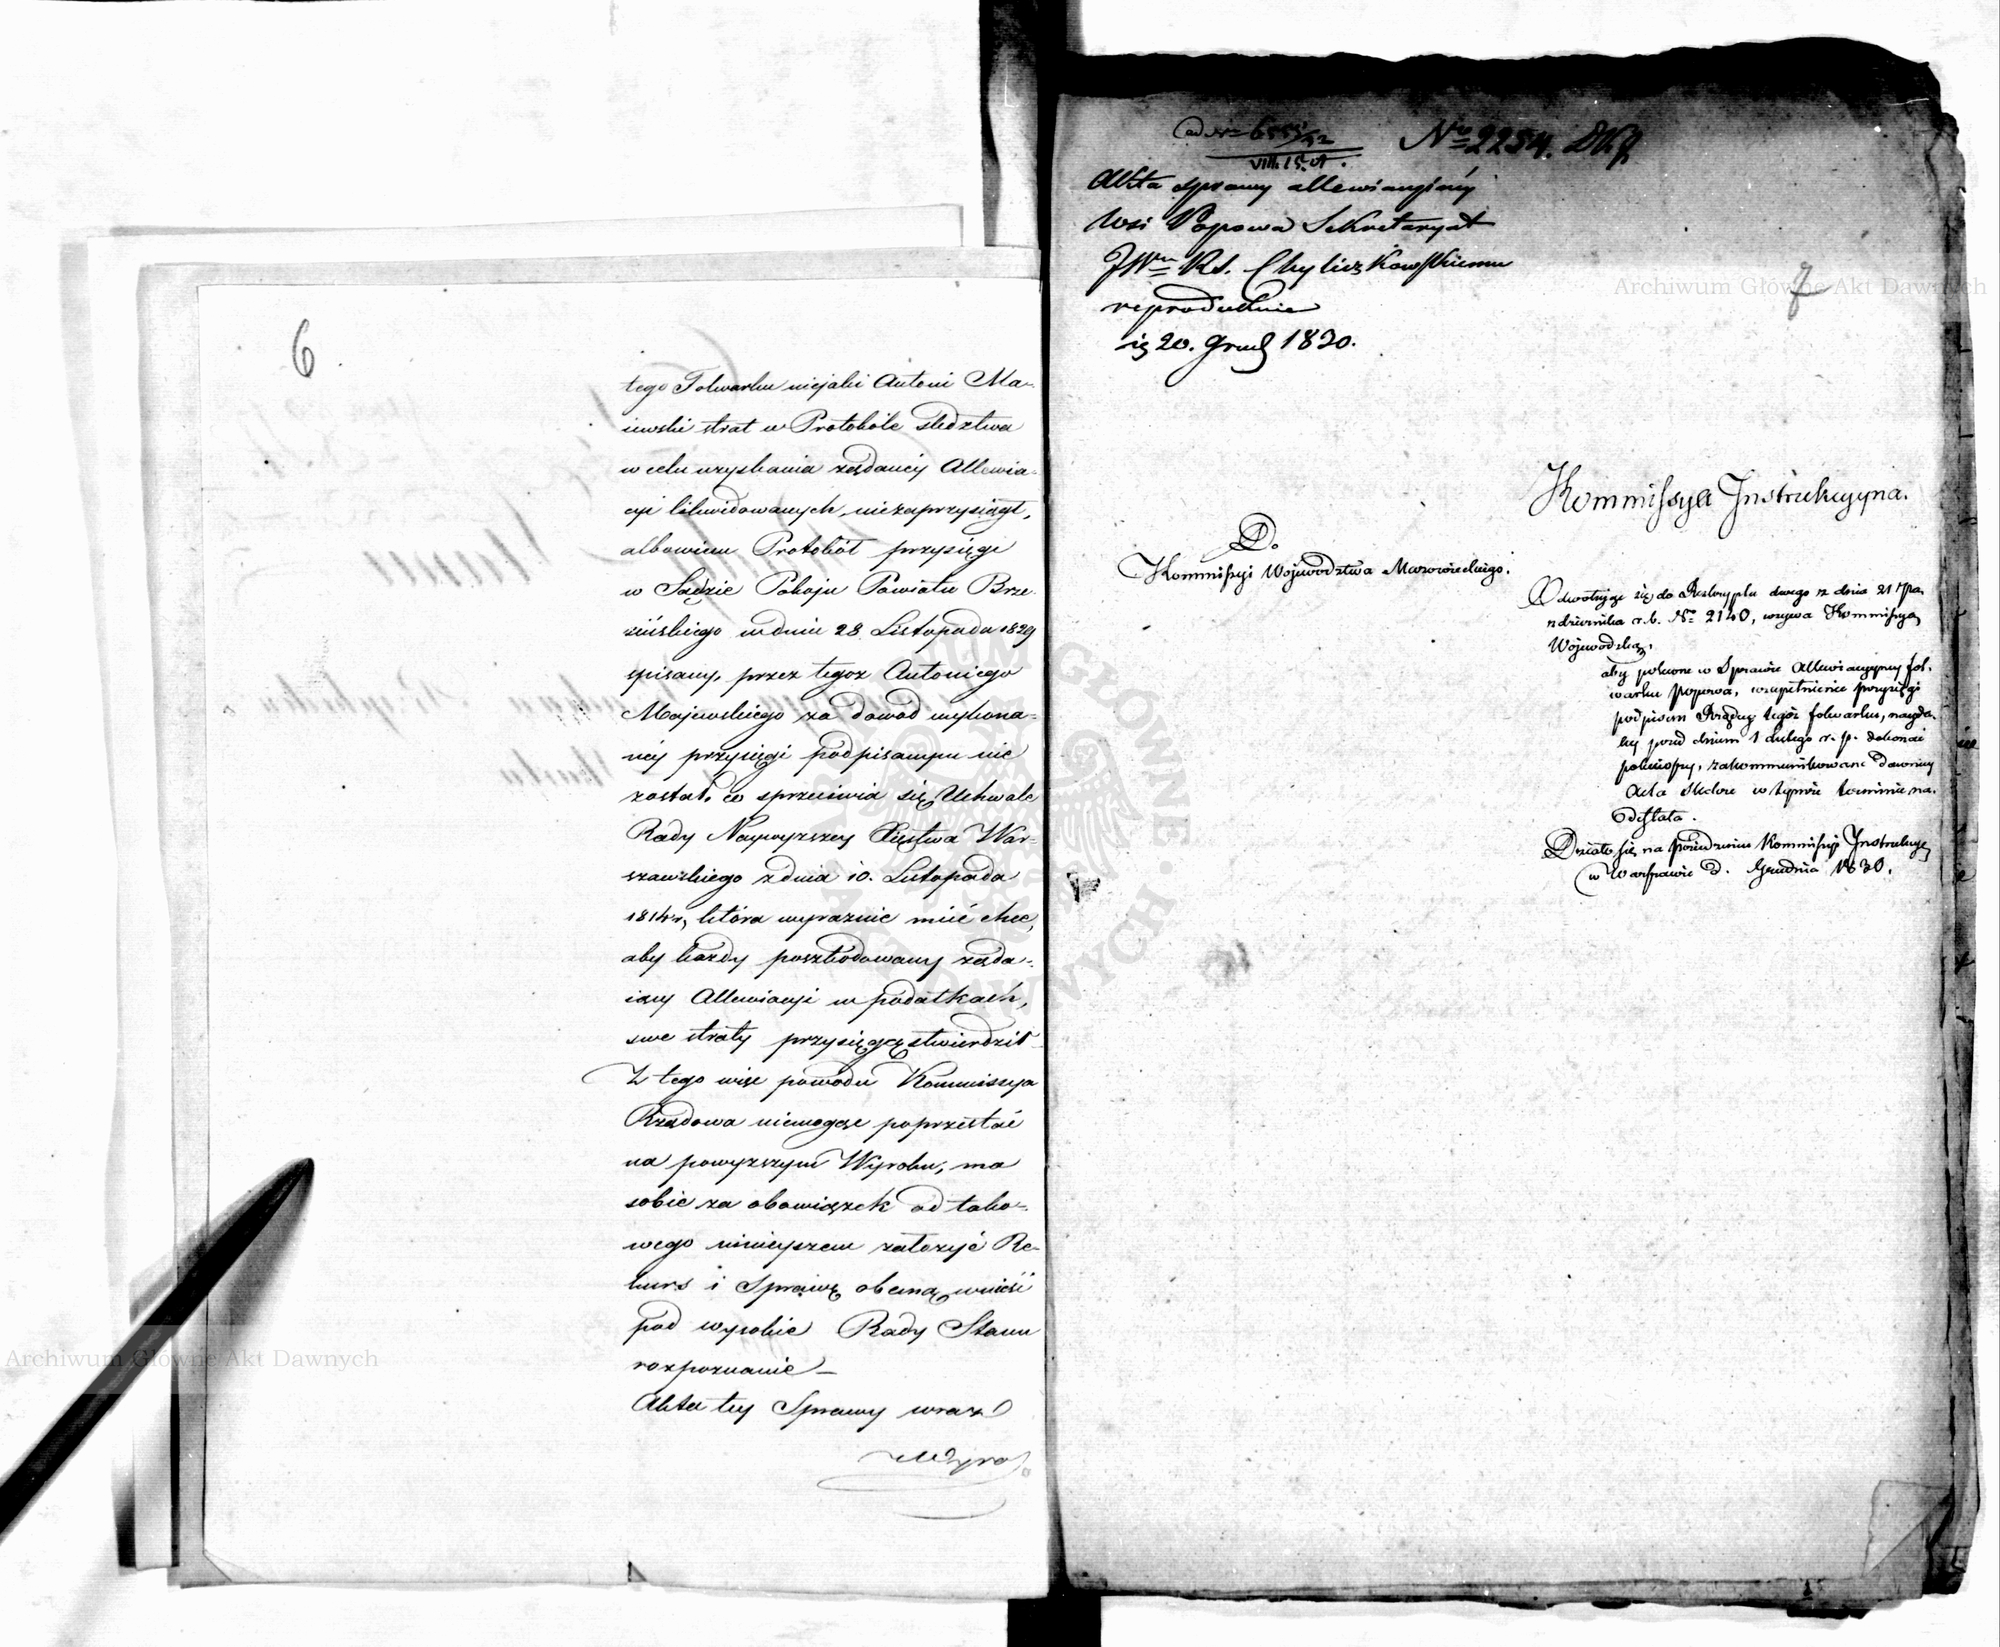 6
tego Folwarku niejaki Antoni Ma-
iewski strat w Protokóle śledztwa
w celu uzyskania żądanéy Allewia-
cyi likwidowanych, niezaprzysiągł,
albowiem Protokół przysięgi
w Sądzie Pokoju Powiatu Brze-
zińskiego w dniu 28. Listopada 1829
spisany, przez tegoż Antoniego
Majewskiego za dowód wykona-
néy przysięgi podpisanym nie
został, co sprzeciwia się Uchwale
Rady Naywyższey Xięstwa War-
szawskiego z dnia 10. Listopada
1814 r, która wyraznie mieć chce,
aby każdy poszkodowany żąda-
iący Allewiacyi w podatkach,
swe straty przysięgą stwierdził
Z tego więc powodu Kommissya
Rządowa niemogąc poprzestać
na powyższym Wyroku, ma
sobie za obowiązek od tako-
wego ninieyszem założyć Re-
kurs i Sprawę obecną wnieść
pod wysokie Rady Stanu
rozpoznanie –
Akta tey Sprawy wraz
z Wyro
ad Nro 6555/32
VIII. 15.
No 2254. DKJ
7
Akta sprawy allewiacyinéy
Wsi Popowa Sekretaryat
JWmu Rs. Chyliczkowskiemu
reprodukuie
20. Grud 1830.
Kommissya Instrukcyyna.
Do
Kommissyi Województwa Mazowieckiego.
Odwołuiąc się do Reskryptu swego z dnia 21 Paź-
dziernika r. b. No 2140, wzywa Kommissyą
Wojewódzką,
aby polecone w Sprawie Allewiacyyney fol-
warku Popowa, uzupełnienie przysięgi
podpisem Rządcy tegóż folwarku, nayda-
ley przed dniem 1 Lutego r. p. dokonać
poleciwszy, zakommunikowane dawniey
Akta śledcze w tymże terminie na-
desłała.
Działo się na posiedzeniu Kommissyi Instrukcyy.
w Warszawie d. Grudnia 1830.
Archiwum Główne Akt Dawnych
Archiwum Główne Akt Dawnych